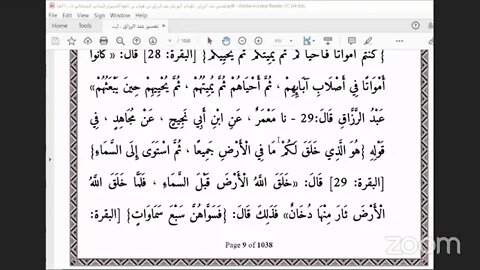 {كُنْتُمْ أَمْوَاتًا فَأَحْيَاكُمْ ثُمَّ يُمِيتُكُمْ ثُمَّ يُحْيِيكُمْ} [البقرة: 28] قَالَ: «كَانُوا
أَمْوَاتًا فِي أَصْلَابِ آبَائِهِمْ ، ثُمَّ أَحْيَاهُمْ ثُمَّ يُمِيتُهُمْ ، ثُمَّ يُحْيِيهِمْ حِينَ يَبْعَثُهُمْ»
عَبْدُ الرَّزَّاقِ قَالَ:29 - نا مَعْمَرٌ , عَنِ ابْنِ أَبِي نَجِيحٍ , عَنْ مُجَاهِدٍ , فِي
قَوْلِهِ {هُوَ الَّذِي خَلَقَ لَكُمْ مَا فِي الْأَرْضِ جَمِيعًا , ثُمَّ اسْتَوَى إِلَى السَّمَاءِ}
[البقرة: 29] قَالَ: «خَلَقَ اللَّهُ الْأَرْضَ قَبْلَ السَّمَاءِ , فَلَمَّا خَلَقَ اللَّهُ
الْأَرْضَ ثَارَ مِنْهَا دُخَانٌ» فَذَلِكَ قَالَ: {فَسَوَّاهُنَّ سَبْعَ سَمَاوَاتٍ} [البقرة:
Page 9 of 1038
zoom